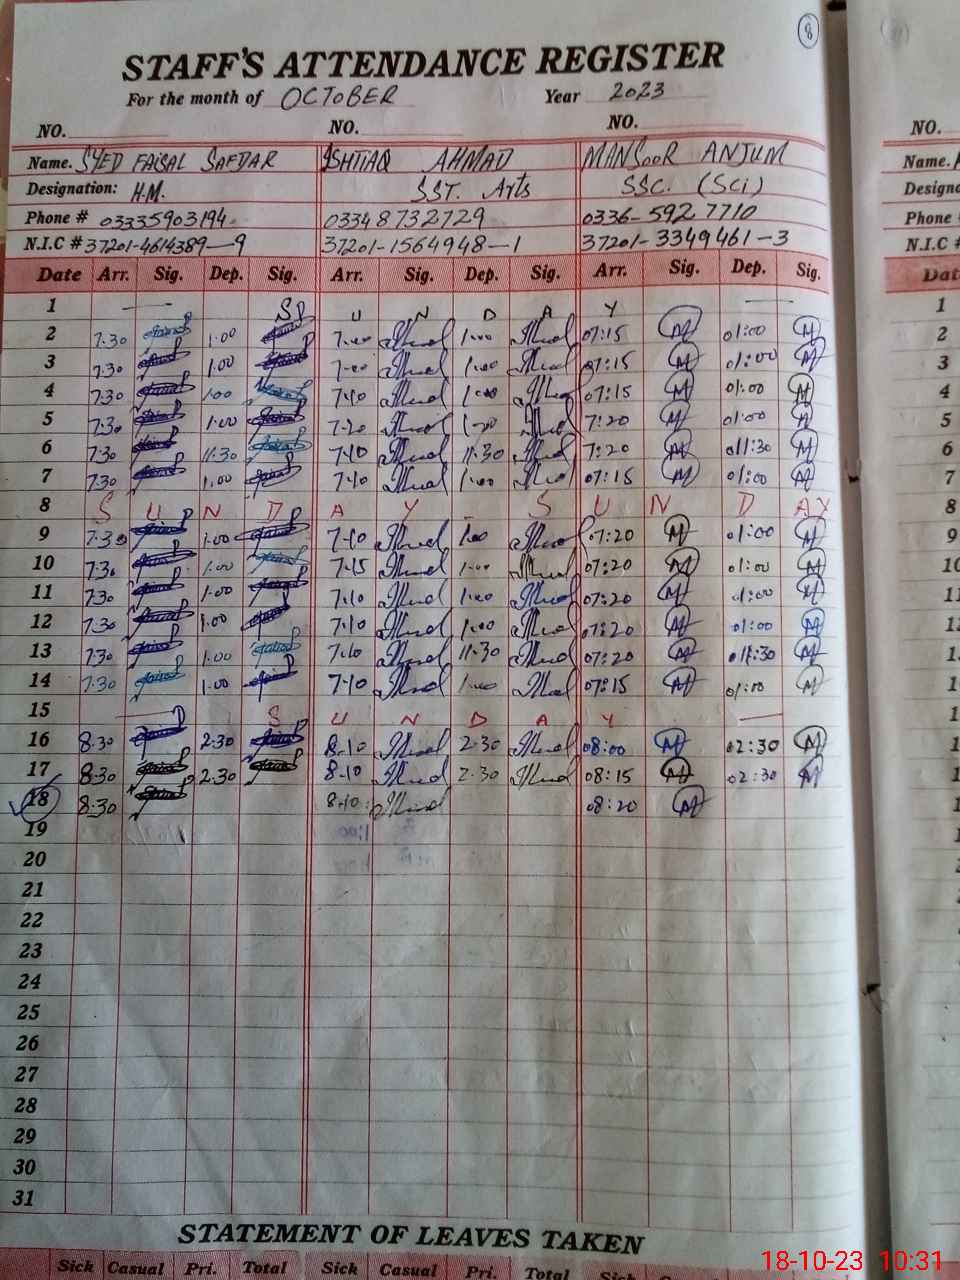 8
STAFF'S ATTENDANCE REGISTER
For the month of OCTOBER Year 2023
NO. NO. NO. NO.
Name. SYED FAISAL SAFDAR ISHTIAQ AHMAD MANSOOR ANJUM Name.
Designation: H.M. SST. Arts SSC. (Sci) Designa
Phone # 03335903194 03348732729 0336-5927710 Phone #
N.I.C # 37201-4614389-9 37201-1564948-1 37201-3349461-3 N.I.C #
Date Arr. Sig. Dep. Sig. Arr. Sig. Dep. Sig. Arr. Sig. Dep. Sig. Dat
1 S U N D A Y 1
2 7.30 1.00 1.00 07:15 M 01:00 M 2
3 7.30 1.00 1.00 07:15 M 01:00 M 3
4 7.30 1.00 7.10 1.00 07:15 M 01:00 M 4
5 7.30 1.00 7.20 7:20 M 01:00 M 5
6 7.30 11.30 7.10 11.30 7:20 M 011:30 M 6
7 7.30 1.00 7.10 1.00 07:15 M 01:00 M 7
8 S U N D A Y S U N D A Y 8
9 7.30 1.00 7.10 1.00 07:20 M 01:00 M 9
10 7.30 1.00 7.15 1.00 07:20 M 01:00 M 10
11 7.30 1.00 7.10 1.00 07:20 M 01:00 M 11
12 7.30 1.00 7.10 1.00 07:20 M 01:00 M 12
13 7.30 1.00 7.10 11.30 07:20 M 011:30 M 1
14 7.30 1.00 7.10 1.00 07:15 M 01:00 M 1
15 S U N D A Y 1
16 8.30 2.30 8.10 2.30 08:00 M 02:30 M 1
17 8.30 2.30 8.10 2.30 08:15 M 02:30 M 1
18 8.30 8.10 08:20 M
19
20
21
22
23
24
25
26
27
28
29
30
31
STATEMENT OF LEAVES TAKEN
Sick Casual Pri. Total Sick Casual Pri. Total Sick
18-10-23 10:31